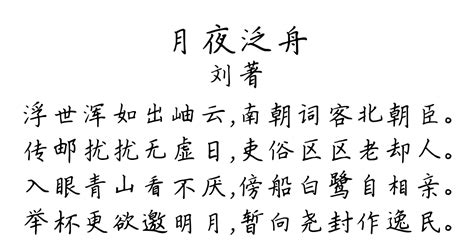 月夜泛舟
刘著
浮世浑如出岫云,南朝词客北朝臣。
传邮扰扰无虚日,吏俗区区老却人。
入眼青山看不厌,傍船白鹭自相亲。
举杯更欲邀明月,暂向尧封作逸民。